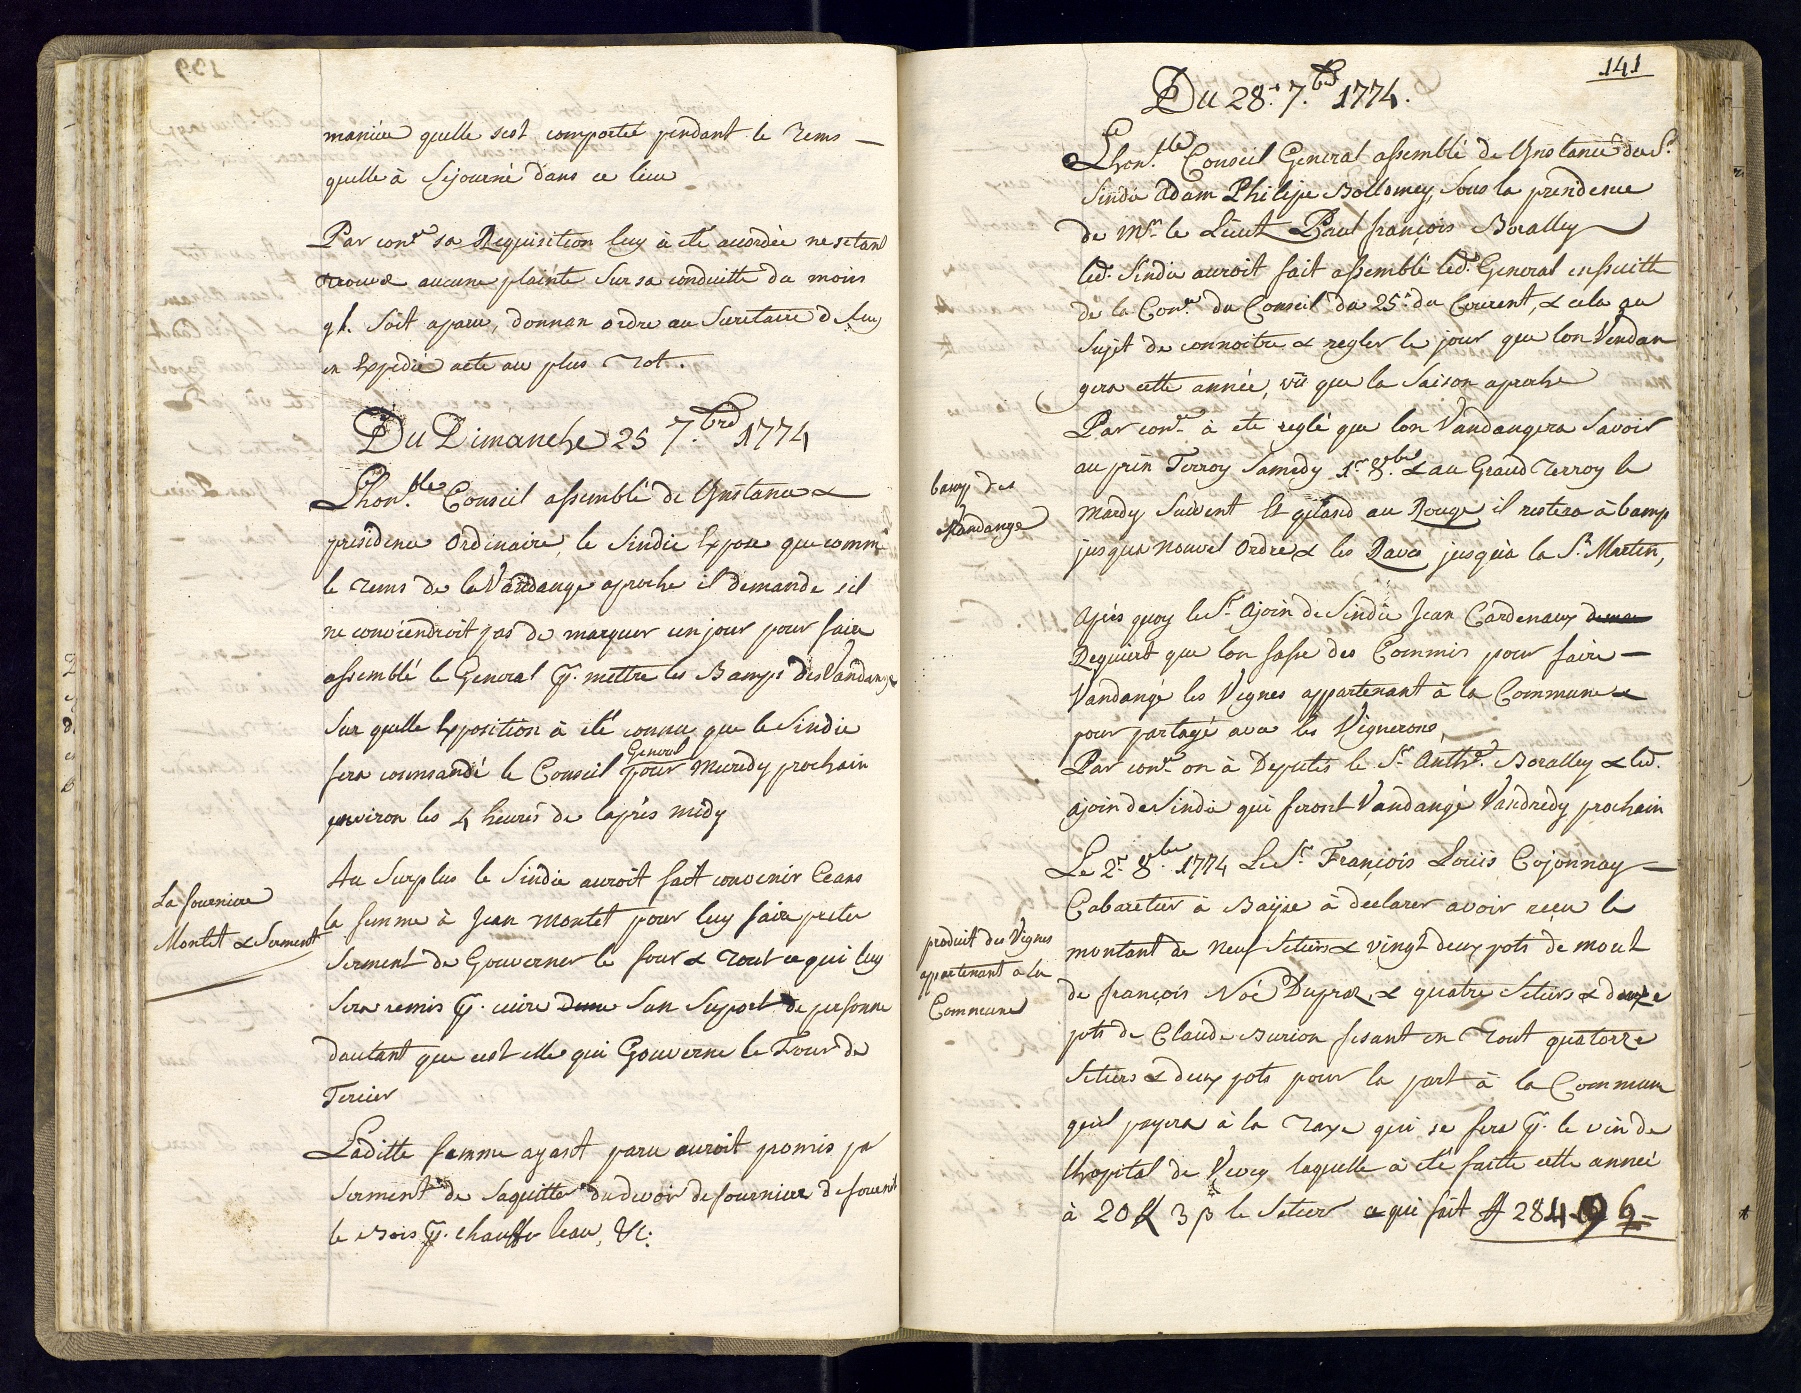 maniere quelle sest comportée pendant le Tems
quelle à Sejourné dans ce lieu
Par con.ce sa Requisition luy à eté accordée ne setant
trouvé aucune plainte Sur sa conduitte du moins
q.l. soit aparu, donnan ordre au Secretaire de luy
en Expedié acte au plus Tot.
Du Dimanche 25 7.brd 1774
Lhon.ble Conseil assemblé de Ynstance &
presidence Ordinaire, le Sindic Expose que comme
le Tems de la Vandange aproche il demande sil
ne conviendroit pas de marquer un jour pour faire
assemblé le General p.r mettre les Bamps des Vandange
Sur quelle Exposition à eté connu que le Sindic
fera commandé le Conseil General pour Mecredy prochain
environ les 4 heures de laprès midy
La fourniere
Montet & Serment
Au Surplus le Sindic auroit fait convenir Ceans
la femme à Jean Montet pour luy faire preter
Serment de Gouverner le four & Tout ce qui luy
Sera remis p.r cuire San Suport de personne
dautant que cest elle qui Gouverne le Four de
Tercier
Laditte femme ayant paru auroit promis par
Serment de Saquitter du devoir de fourniere de fournit
le Bois p.r chauffer leau, &c.
141
Du 28.e 7.bre 1774.
Lhon.ble Conseil General assemblé de Ynstance du S.r
Sindic Adam Philipe Bollomey, sous la presidence
de Mr. le Lieut Paul françois Boralley
led. Sindic auroit fait assemblé led. General ensuitte
de la Con.ce du Conseil du 25.e du Courent, & cela au
Sujet de connoitre & regler le jour que lon Vendan
gera cette année, vû que la Saison aproche
Par con.ce à eté reglé que lon Vandangera Savoir
bamp des
Vandange
au prin Terroy Samedy 1.r 8.bre & au Grand Terroy le
Mardy Suivent Et q̃tand au Rouge il restera à bamp
jusqua nouvel Ordre & les Rave jusquà la S.t Martin,
Apres quoy le S.r Ajoin de Sindic Jean Cardenaux
Requiert que lon fasse des Commis pour faire
Vandangé les Vignes appartenant à la Commune &
pour partagé avec les Vignerons,
Par con.ce on à Deputés le S.r Anth.e Boralley & led.
ajoin de Sindic qui feront Vandangé Vandredy prochain
Le 2.e 8.bre 1774 Le S.r François Louis Cojonnay
Cabaretier à Bassse à declarer avoir reçu le
produit des Vignes
appartenant à la
Commune
montant de Neuf Setiers & vingt deux pots de mout
de françois Noé Dupraz, & quatre Setiers & douze
pots de Claude Burion fesant en Tout quatorze
Setiers & deux pots pour la part à la Commune
quil payera à la Taxe qui se fera p.r le vin de
Lhopital de Vevey laquelle à eté faitte cette année
à 20 ff 3 ß le Setier ce qui fait ff 284 . 9 6